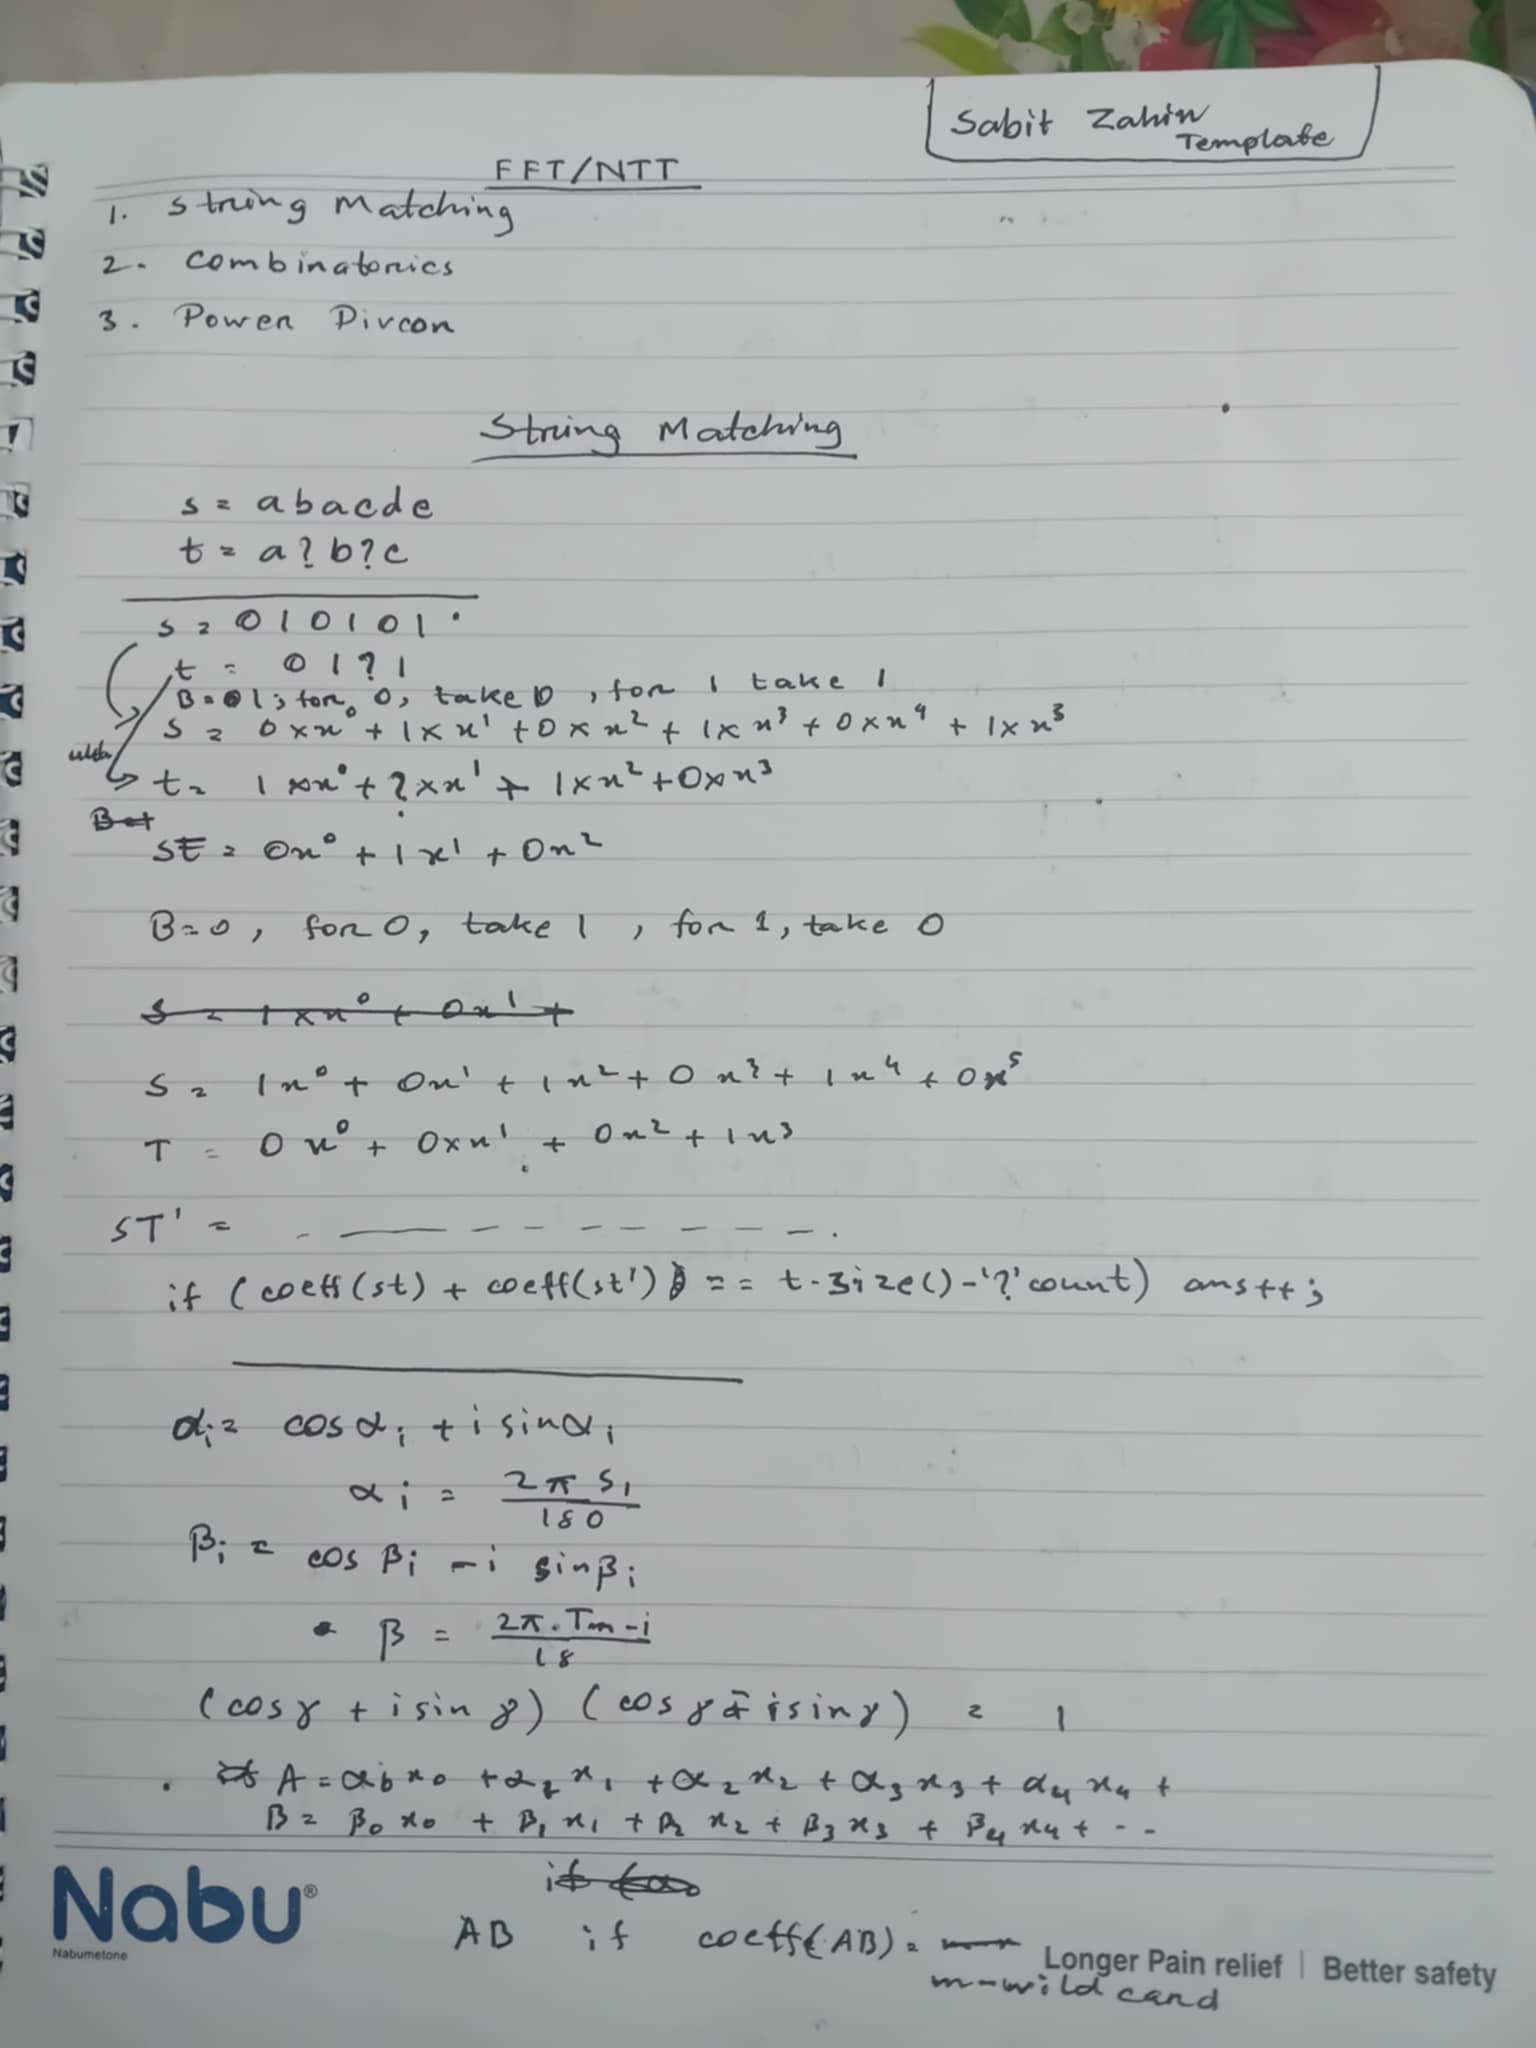 Sabit Zahin
Template
FFT/NTT
1. String Matching
2. Combinatorics
3. Power Divcon
String Matching
s = abacde
t = a?b?c
s = 010101
t = 01?1
B=1; for 0, take 0, for 1 take 1
s = 0×x⁰ + 1×x¹ + 0×x² + 1×x³ + 0×x⁴ + 1×x⁵
t = 1×x⁰ + ?×x¹ + 1×x² + 0×x³
st = 0x⁰ + 1x¹ + 0x²
B=0, for 0, take 1, for 1, take 0
s = 1×x⁰ + 0x¹ +
S = 1x⁰ + 0x¹ + 1x² + 0x³ + 1x⁴ + 0x⁵
T = 0x⁰ + 0×x¹ + 0x² + 1x³
ST' = - — - - - - - - - .
if (coeff(st) + coeff(st') == t.size()-'?'count) ans++;
αᵢ = cos αᵢ + i sin αᵢ
αᵢ = 2π Sᵢ / 180
βᵢ = cos βᵢ - i sin βᵢ
β = 2π.Tm-i / 18
(cosγ + i sinγ) (cosγ - i sinγ) = 1
A = α₀x₀ + α₁x₁ + α₂x₂ + α₃x₃ + α₄x₄ +
B = β₀x₀ + β₁x₁ + β₂x₂ + β₃x₃ + β₄x₄ + - -
AB if coeff(AB) =
m-wild card
Nabu®
Nabumetone
Longer Pain relief | Better safety